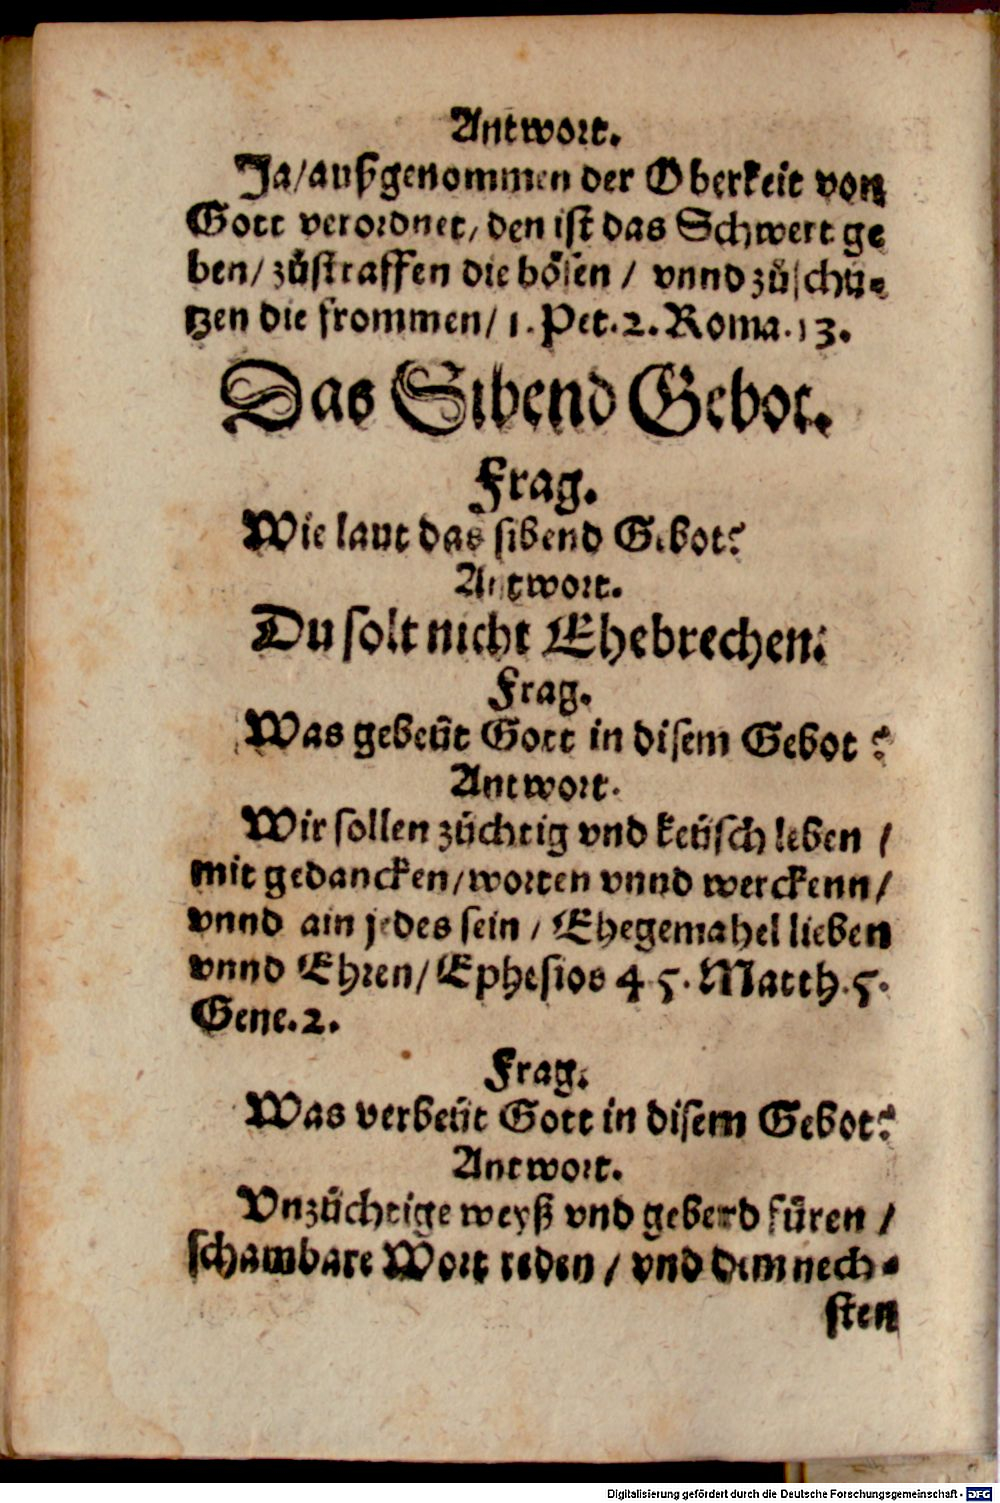 Antwort.
Ja/außgenommen der Oberkeit von
Gott verordnet/ den ist das Schwert ge
ben/ zůstraffen die bösen / vnnd zůschü⸗
tzen die frommen/ 1. Pet. 2. Roma. 13.
Das Sibend Gebot.
Frag.
Wie laut das sibend Gebot?
Antwort.
Du solt nicht Ehebrechen.
Frag.
Was gebeüt Gott in disem Gebot ?
Antwort.
Wir sollen züchtig vnd keüsch leben /
mit gedancken/worten vnnd werckenn/
vnnd ain jedes sein / Ehegemahel lieben
vnnd Ehren/ Ephesios 4 5. Matth. 5.
Gene. 2.
Frag.
Was verbeüt Gott in disem Gebot?
Antwort.
Vnzüchtige weyß vnd geberd füren /
schambare Wort reden / vnd dem nech⸗
sten
Digitalisierung gefördert durch die Deutsche Forschungsgemeinschaft - DFG